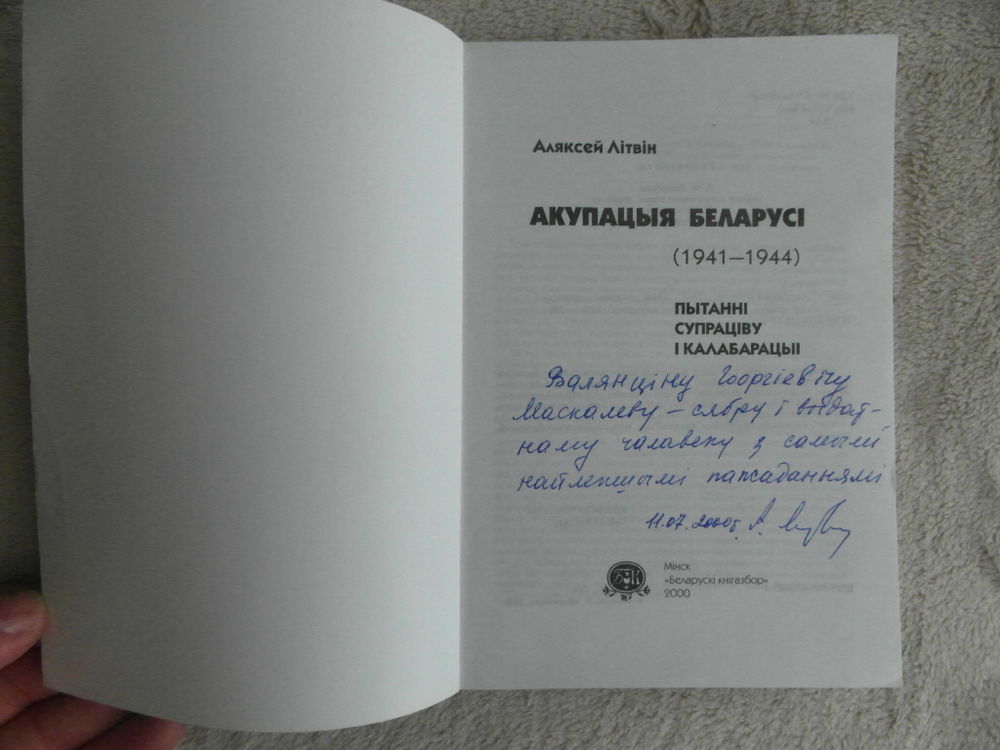 Аляксей Літвін
АКУПАЦЫЯ БЕЛАРУСІ
(1941—1944)
ПЫТАННІ
СУПРАЦІВУ
І КАЛАБАРАЦЫІ
Валянціну Георгіевічу
Маскалеву – сябру і выдат-
наму чалавеку з самымі
найлепшымі пажаданнямі
11.07.2000г. А.
БК
Мінск
«Беларускі кнігазбор»
2000